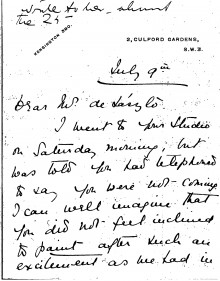 write to her, about
the 25
KENSINGTON 390.
2, CULFORD GARDENS,
S.W.3.
July 9th
Dear Mr de László
I went to your Studio
on Saturday morning, but
was told you had telephoned
to say you were not coming
I can well imagine that
you did not feel inclined
to paint after such an
excitement as we had in